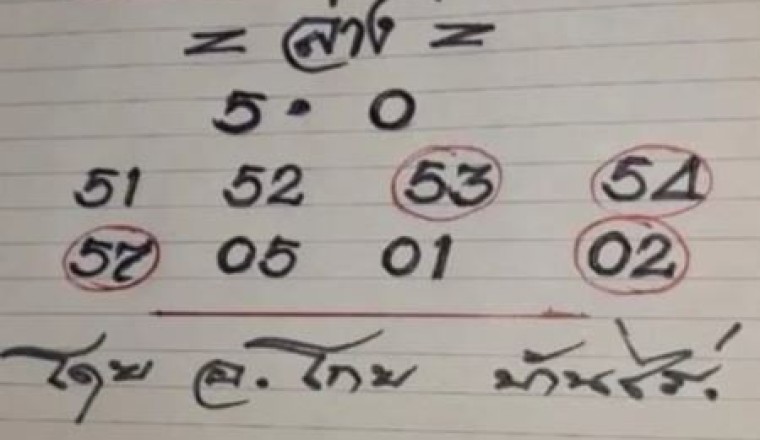 = ล่าง =
5 • 0
51 52 53 54
57 05 01 02
โดย อ. โกย บ้านไร่.